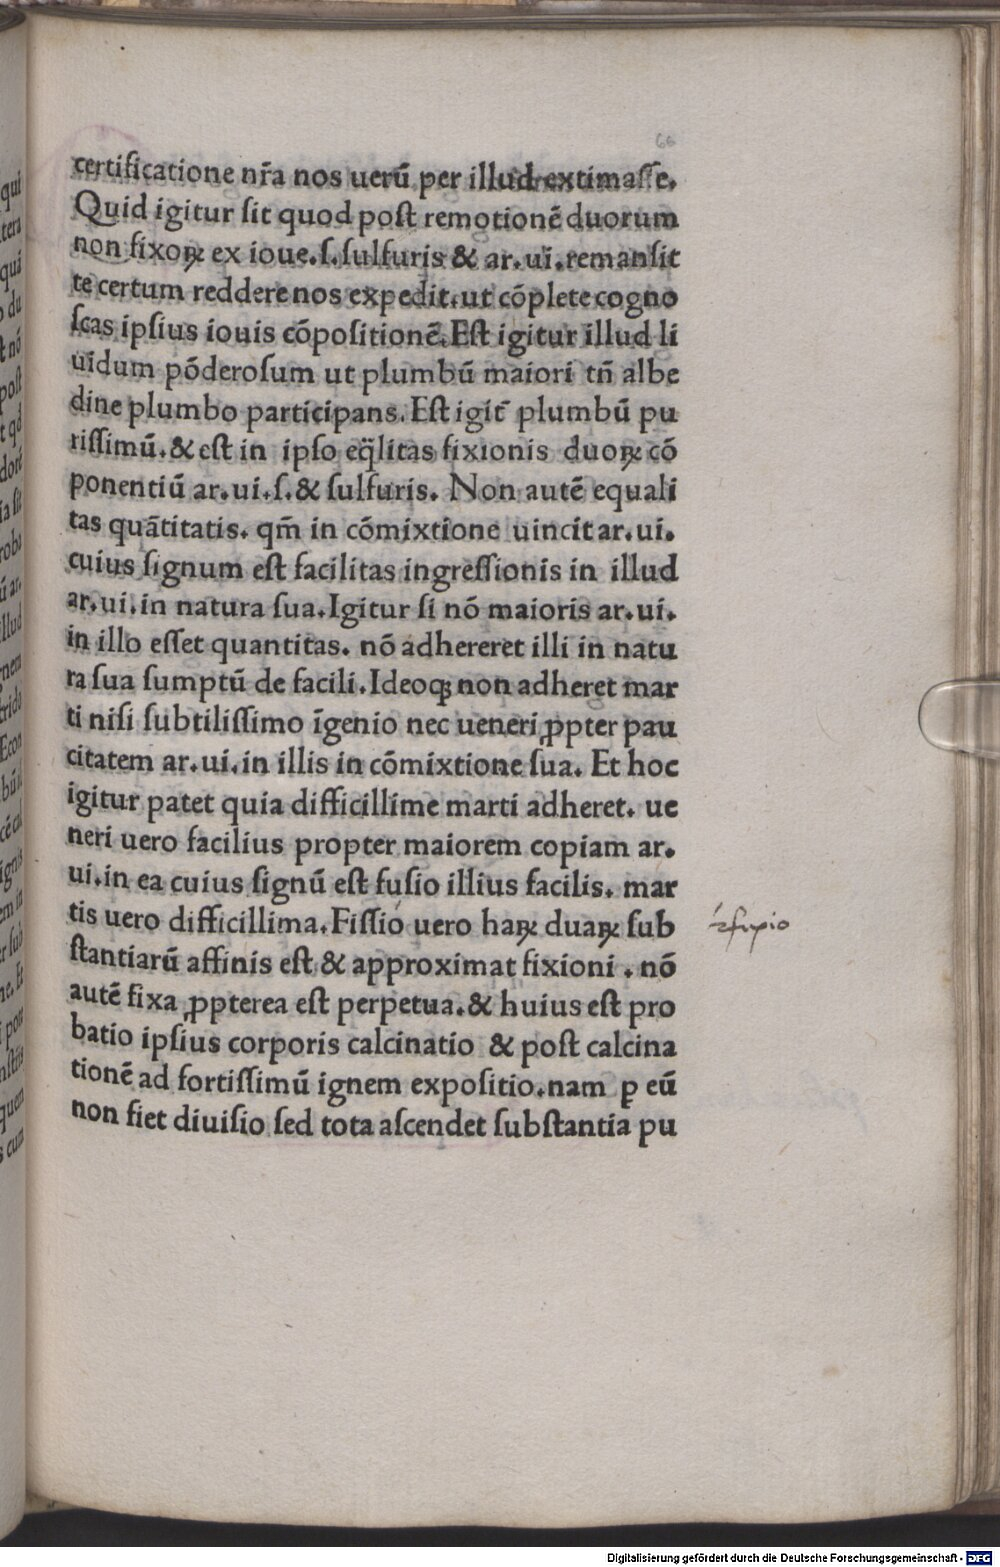 66
certificatione nr̃a nos uerũ per illud extimasse.
Quid igitur sit quod post remotionẽ duorum
non fixoꝝ ex ioue.ſ.sulfuris & ar.ui.remansit
te certum reddere nos expedit.ut cõplete cogno
scas ipsius iouis cõpositionẽ.Est igitur illud li
uidum põderosum ut plumbũ maiori tñ albe
dine plumbo participans.Est igit̃ plumbũ pu
rissimũ.& est in ipso eq̃litas fixionis duoꝝ cõ
ponentiũ ar.ui.ſ.& sulfuris. Non autẽ equali
tas quãtitatis. qm̃ in cõmixtione uincit ar.ui.
cuius signum est facilitas ingressionis in illud
ar.ui.in natura sua.Igitur si nõ maioris ar.ui.
in illo esset quantitas. nõ adhereret illi in natu
ra sua sumptũ de facili.Ideoqꝫ non adheret mar
ti nisi subtilissimo ĩgenio nec ueneri ꝓpter pau
citatem ar.ui.in illis in cõmixtione sua. Et hoc
igitur patet quia difficillime marti adheret. ue
neri uero facilius propter maiorem copiam ar.
ui.in ea cuius signũ est fusio illius facilis. mar
tis uero difficillima.Fissio uero haꝝ duaꝝ sub
stantiarũ affinis est & approximat fixioni . nõ
autẽ fixa ꝓpterea est perpetua.& huius est pro
batio ipsius corporis calcinatio & post calcina
tionẽ ad fortissimũ ignem expositio.nam ꝑ eũ
non fiet diuisio sed tota ascendet substantia pu
Digitalisierung gefördert durch die Deutsche Forschungsgemeinschaft - DFG